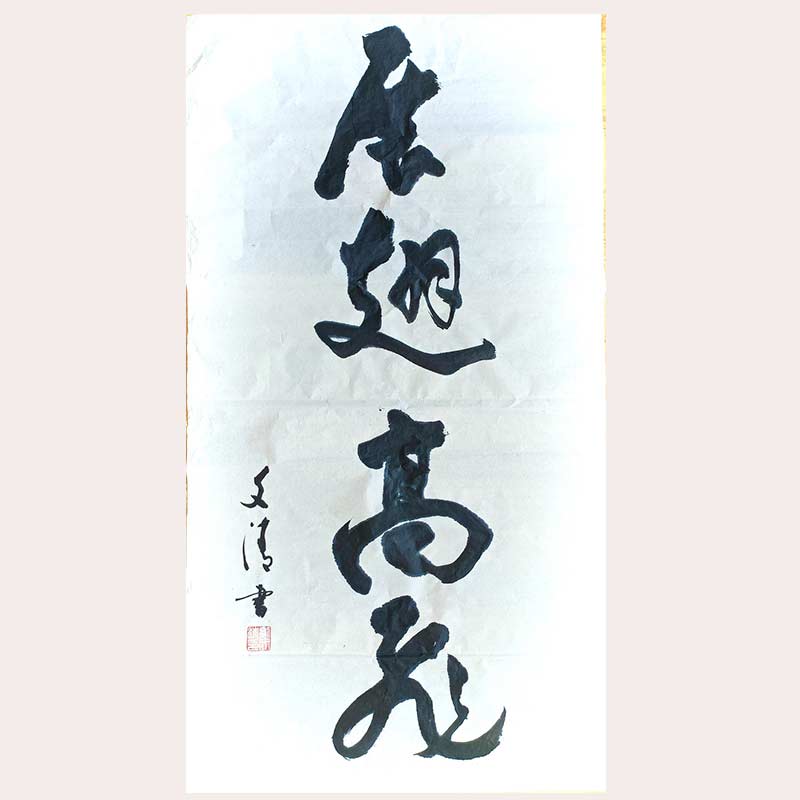 展翅高飞
文清書